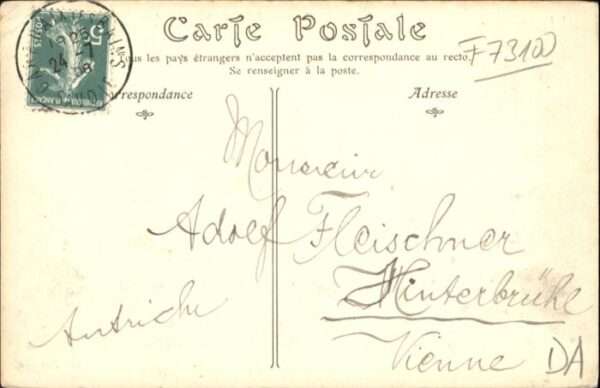 Carte Postale
Tous les pays étrangers n'acceptent pas la correspondance au recto
Se renseigner à la poste.
Correspondance
Adresse
F73100
Monsieur
Adolf Fleischner
Hinterbrühl
Autriche
Vienne
DA